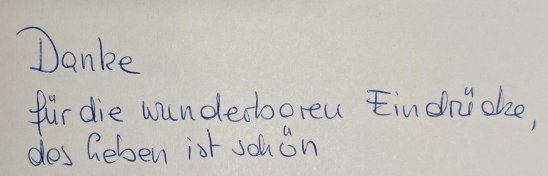 Danke
für die wunderbaren Eindrücke,
das Leben ist schön